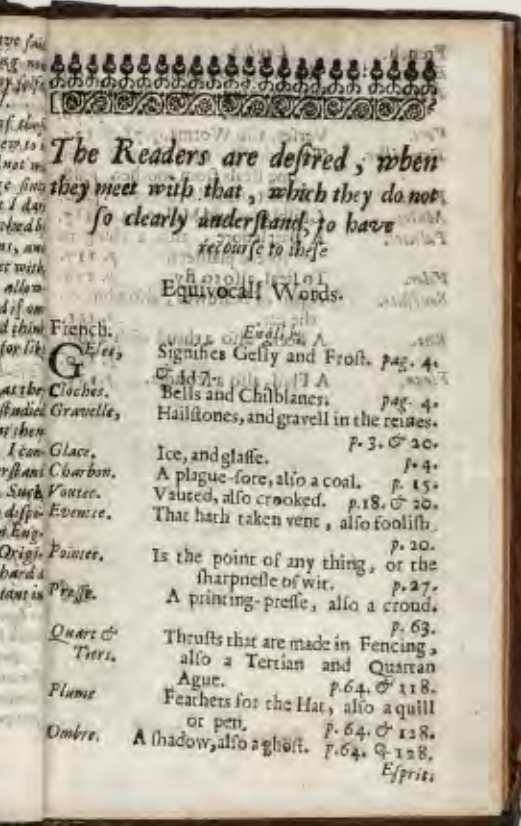 The Readers are desired, when
they meet with that, which they do not
so clearly understand, to have
recourse to these
Equivocall Words.
French. English.
GElee, Signifies Gelly and Frost. pag. 4.
Cloches. Bells and Chilblanes. pag. 4.
Gravelle, Hailstones, and gravell in the reines.
p. 3. & 20.
Glace. Ice, and glasse. p. 4.
Charbon. A plague-sore, also a coal. p. 15.
Voutee. Vauted, also crooked. p. 18. & 20.
Eventée. That hath taken vent, also foolish,
p. 20.
Pointee. Is the point of any thing, or the
sharpnesse of wit. p. 27.
Presse. A printing-presse, also a croud.
p. 63.
Quart & Thrusts that are made in Fencing,
Tiers. also a Tertian and Quartan
Ague. p. 64. & 118.
Plume Feathers for the Hat, also a quill
or pen. p. 64. & 128.
Ombre. A shadow, also a ghost. p. 64. & 128.
Esprit: